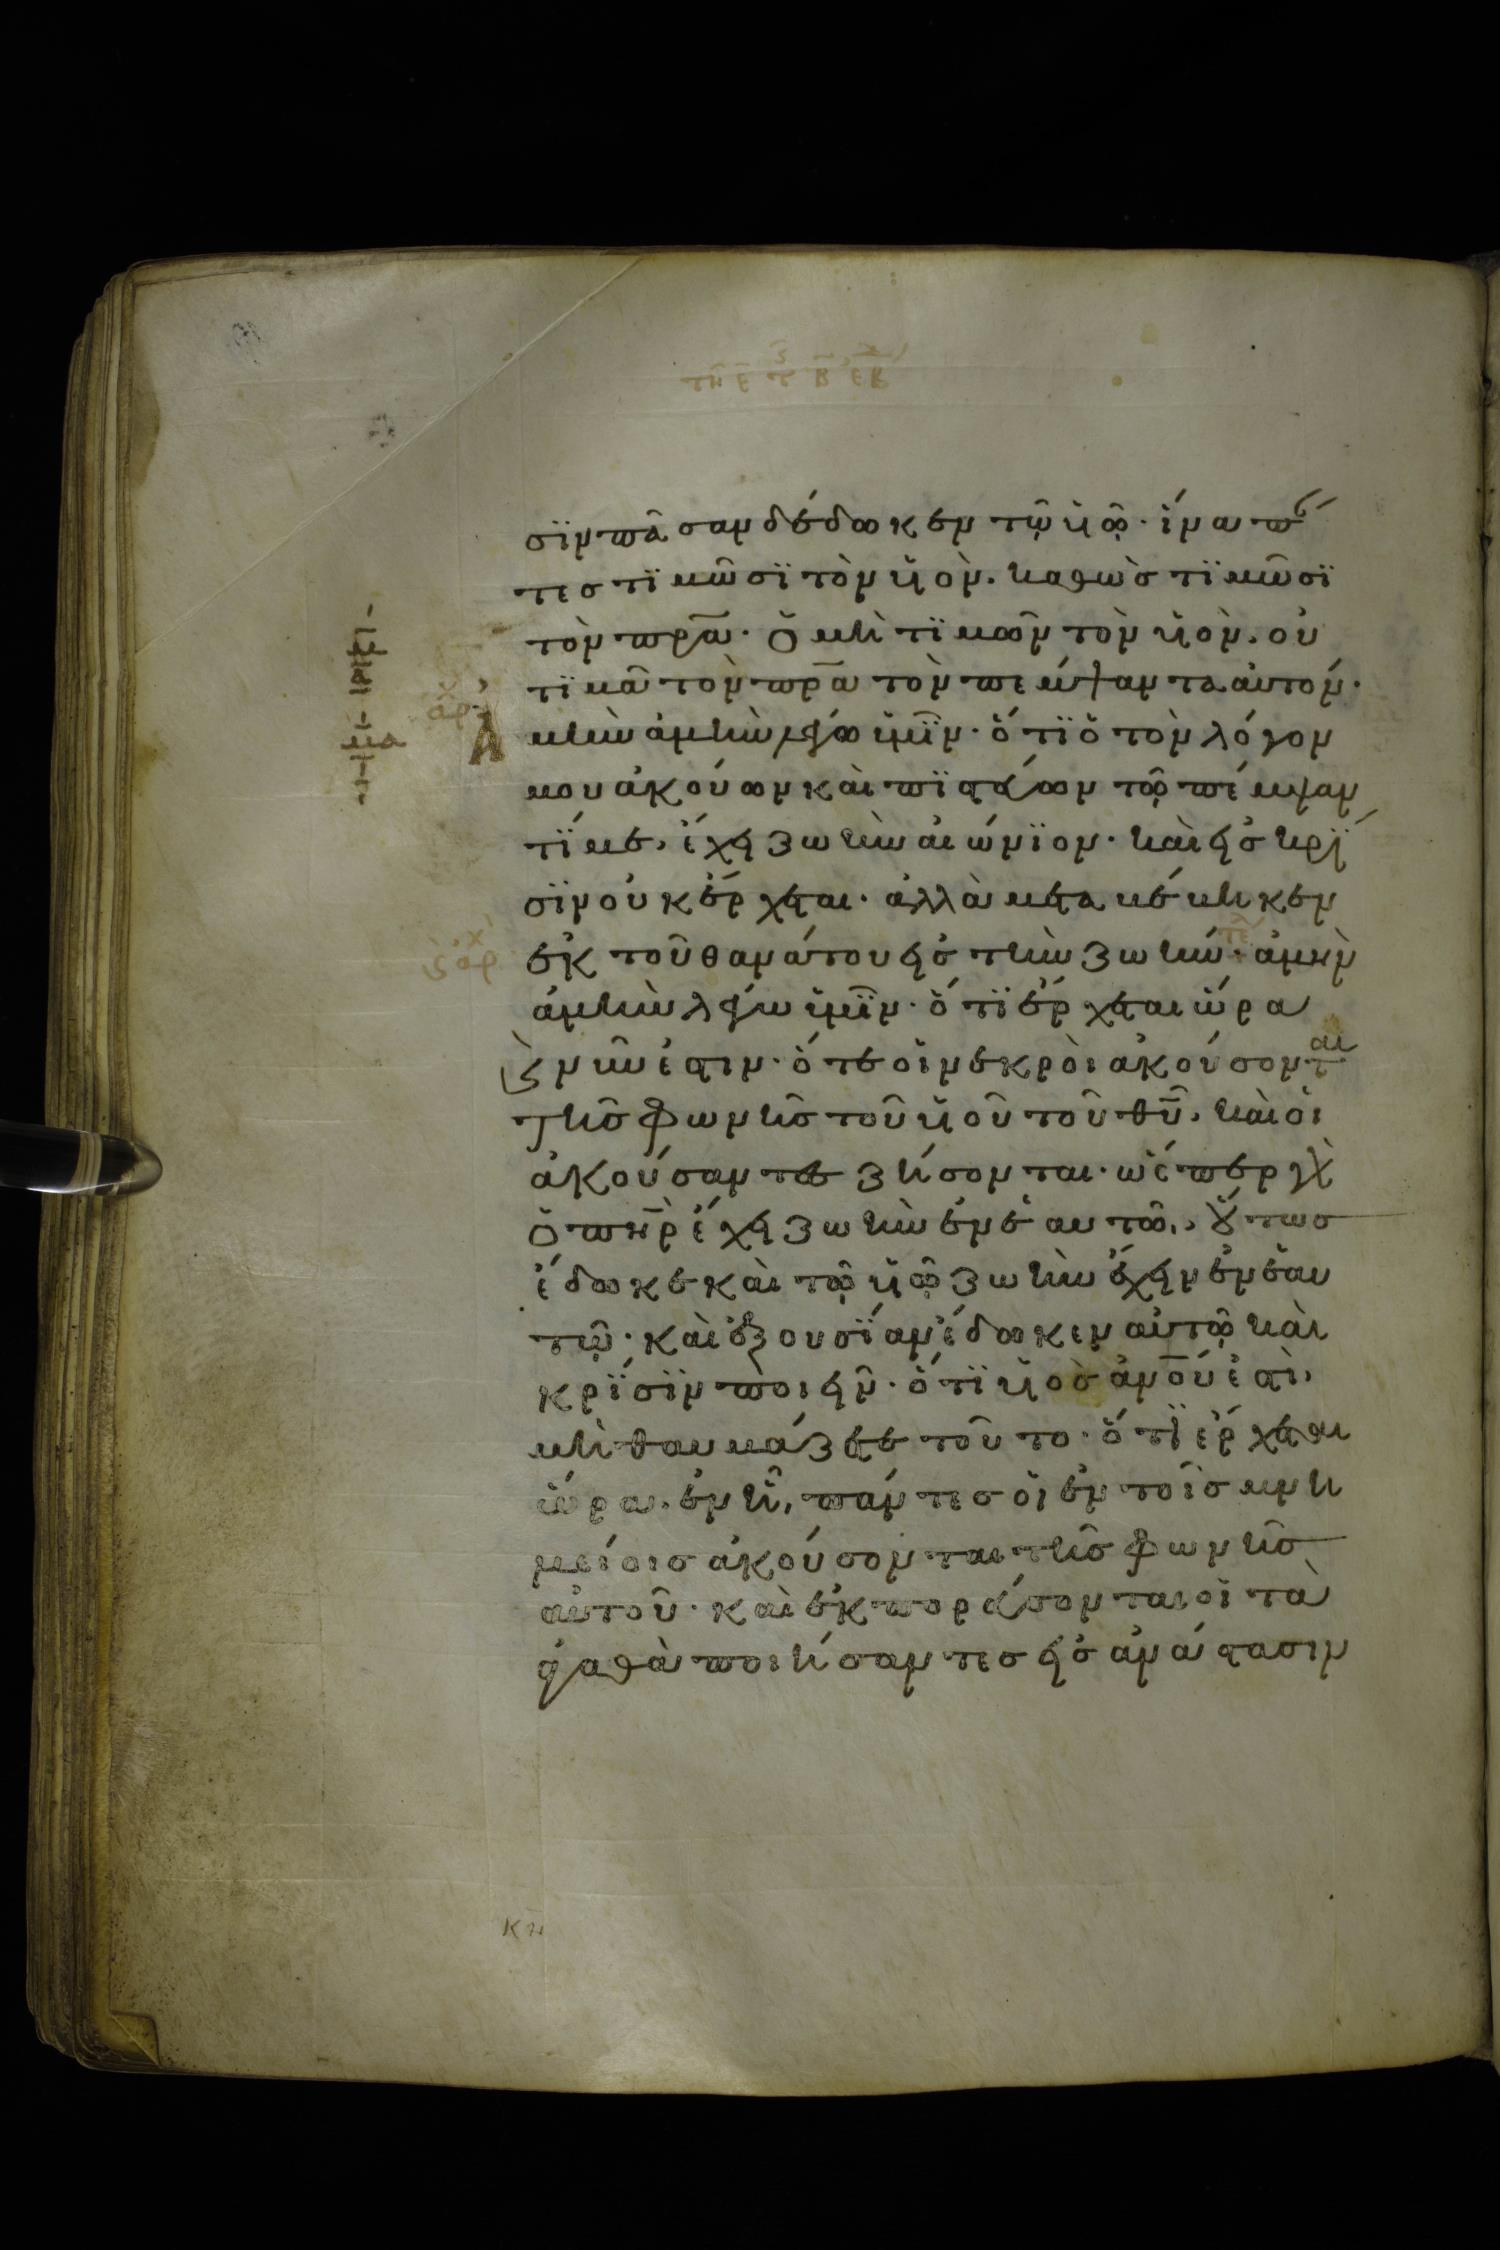 τη ε τ β εβ
σϊν πᾶσαν δέδωκεν τῶ ϋϊῶ· ἵνα πάν
τες τϊμῶσϊ τὸν ϋϊὸν. καθὼς τϊμῶσϊ
τὸν πρ̅α· ὁ μὴ τϊμῶν τὸν ϋϊὸν. οὐ
τϊμᾶ τὸν πρ̅α τὸν πέμψαντα αὐτόν·
Ἀμὴν ἀμὴν λέγω ὑμῖν· ὅτϊ ὁ τὸν λόγον
μου ἀκούων καὶ πϊστεύων τῶ πέμψαν
τΐ με, ἔχει ζωὴν αἰώνϊον· καὶ εἰς κρΐ
σϊν οὐκ ἔρχεται· ἀλλὰ μεταβέβηκεν
ἐκ τοῦ θανάτου εἰς τὴν ζωήν· ἀμὴν
ἀμὴν λέγω ὑμῖν· ὅτϊ ἔρχεται ὥρα
ϗ νῦν ἐστιν· ὅτε οἱ νεκροὶ ἀκούσονται
τῆς φωνῆς τοῦ ϋϊοῦ τοῦ θ̅υ. καὶ οἱ
ἀκούσαντες ζήσονται· ὥσπερ γὰρ
ὁ π̅ηρ ἔχει ζωὴν ἐν ἑαυτῶ, οὕτως
ἔδωκε καὶ τῶ ϋϊῶ ζωὴν ἔχειν ἐν ἑαυ
τῶ· καὶ ἐξουσΐαν ἔδωκεν αὐτῶ καὶ
κρΐσϊν ποιεῖν· ὅτϊ ϋϊὸς ἀν̅ου ἐστὶ,
μὴ θαυμάζετε τοῦτο· ὅτϊ ἔρχεται
ὥρα. ἐν ἧ, πάντες οἱ ἐν τοῖς μνη
μείοις ἀκούσονται τῆς φωνῆς
αὐτοῦ· καὶ ἐκπορεύσονται, οἱ τὰ
ἀγαθὰ ποιήσαντες εἰς ἀνάστασιν
κη